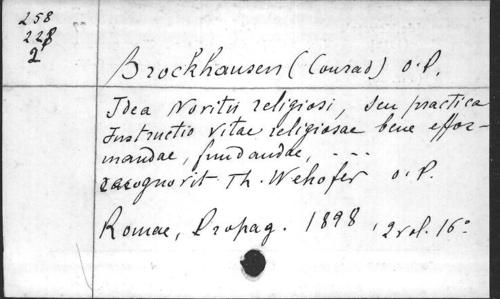 258
228
2
Brockhausen (Conrad) o.P.
Idea Novitii religiosi, seu practica
Instructio vitae religiosae bene effor-
mandae, fundandae, ...
recognovit Th. Wehofer o.P.
Romae, Propag. 1898, 2 vol. 16°